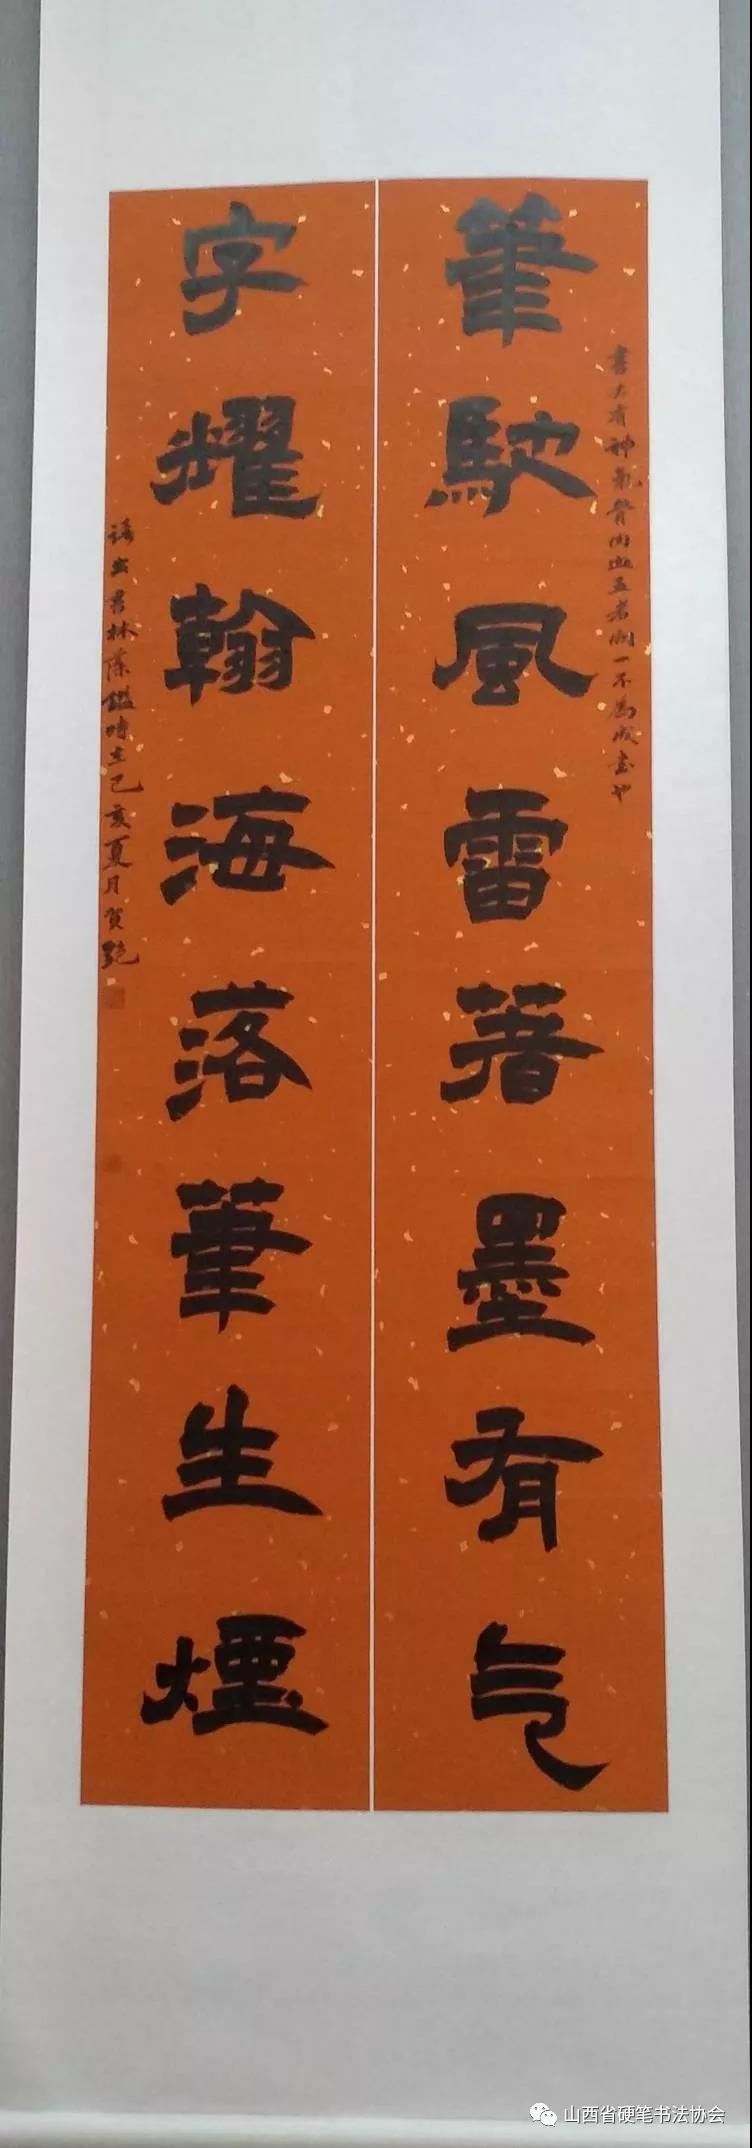 筆馳風雷著墨有气
書必有神氣骨肉血五者闕一不為成書也
字耀翰海落筆生煙
語出書林藻鑑時在己亥夏月賀
山西省硬笔书法协会